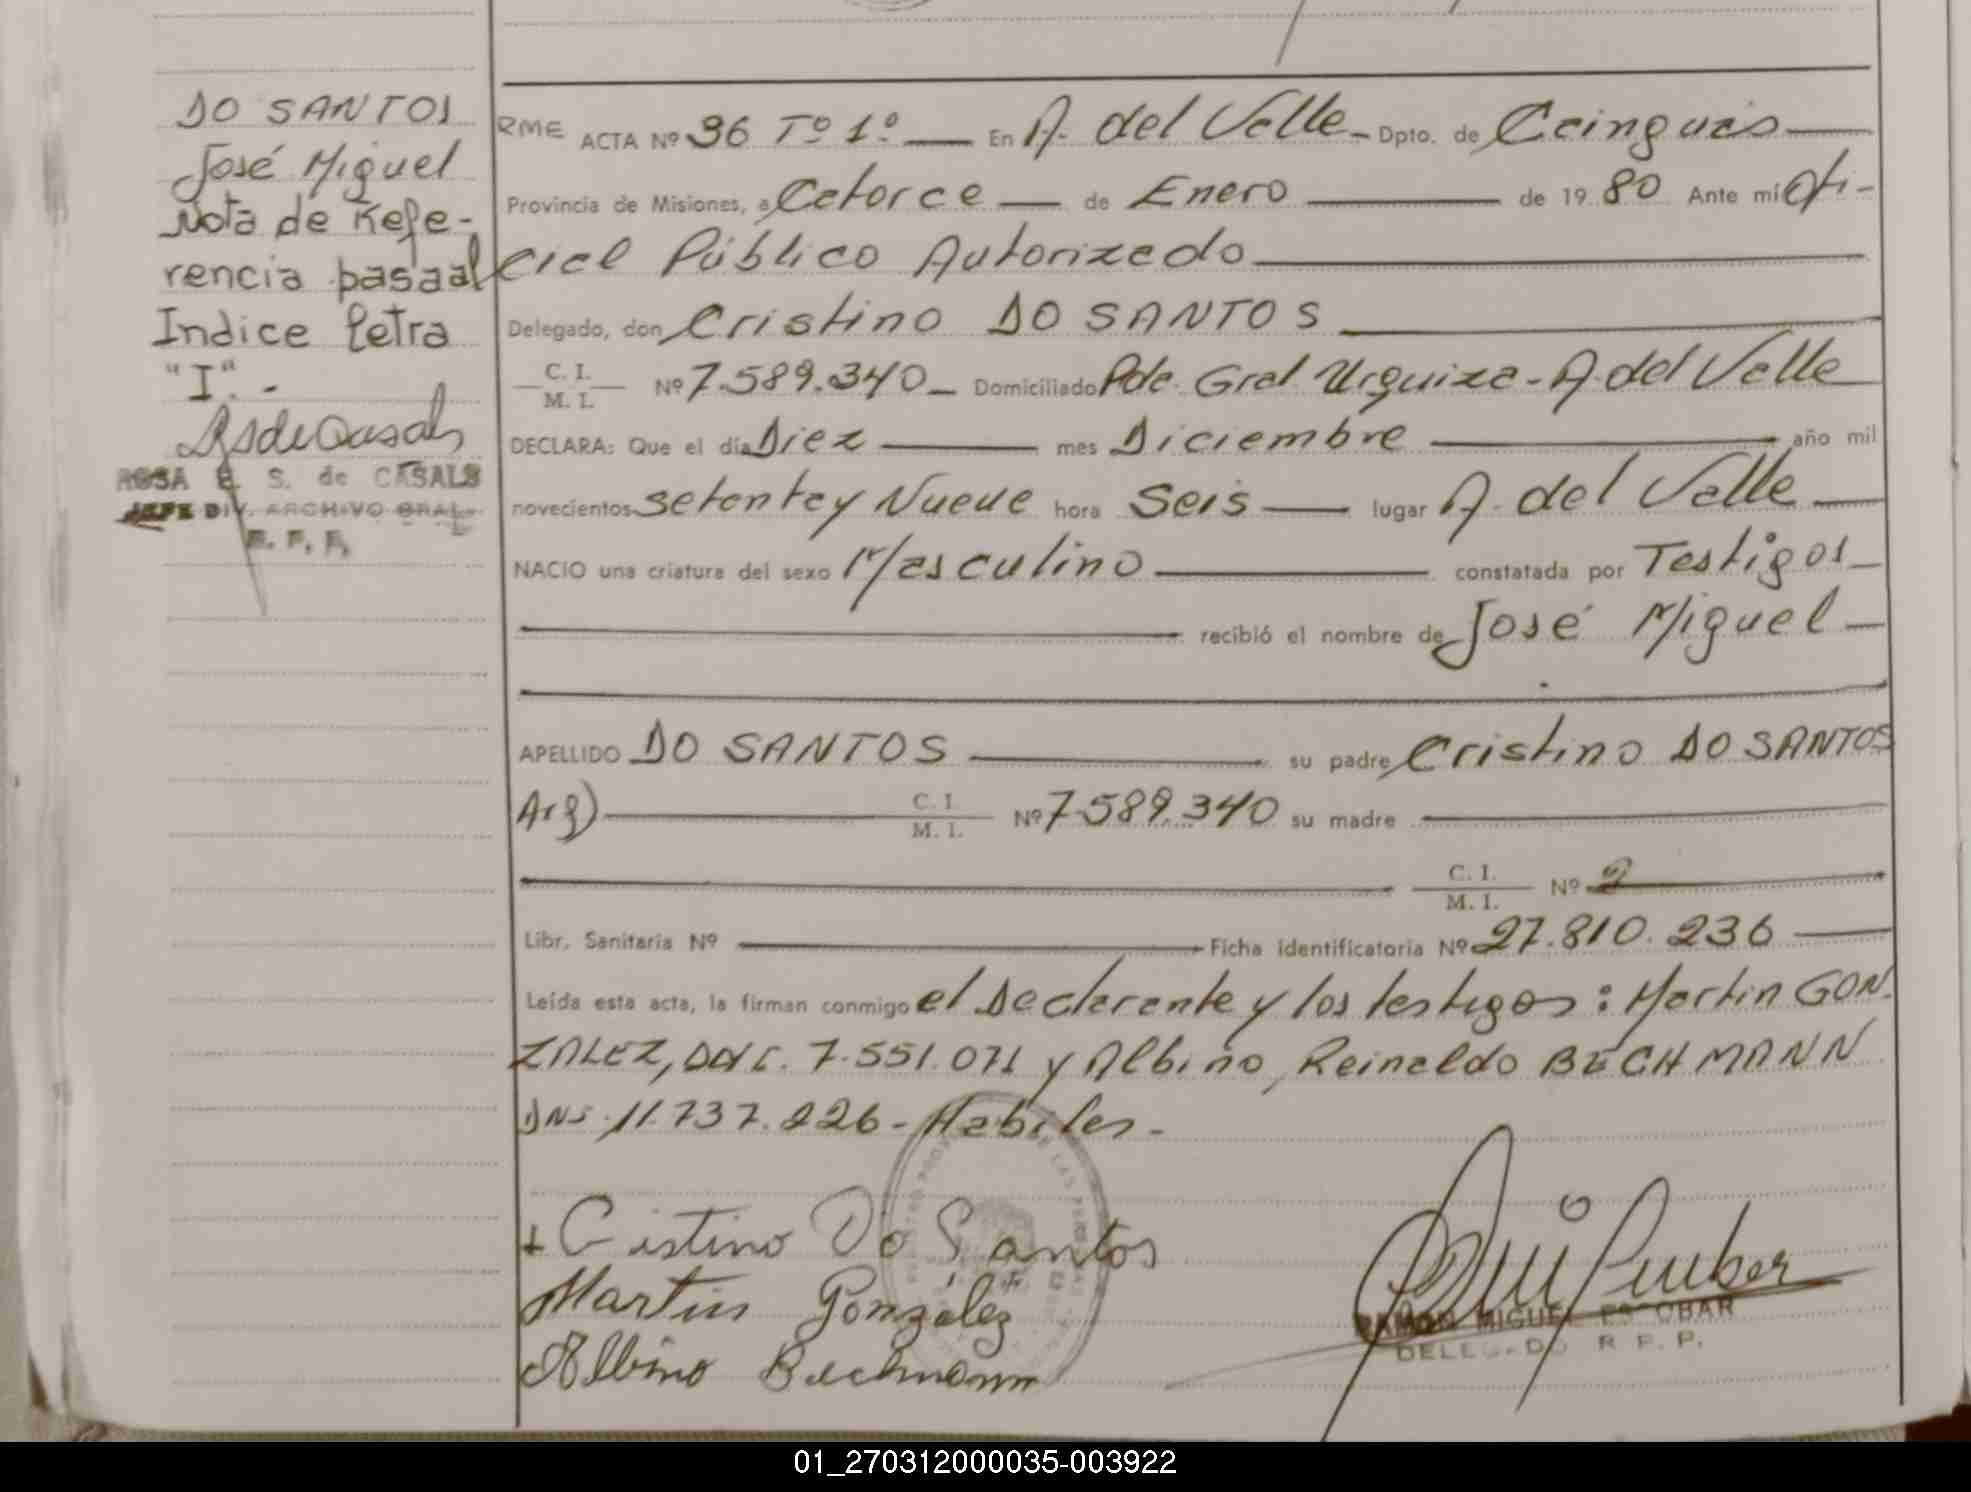 DO SANTOS
José Miguel
Nota de Refe-
rencia pasa al
Indice letra
"I".-
ROSA E. S. de CASALS
JEFE DIV. ARCHIVO GRAL.
R. P. P.
RME ACTA Nº 36 Tº 1º En A. del Valle Dpto. de Cainguás
Provincia de Misiones, a Catorce de Enero de 19 80 Ante mi Ofi-
cial Público Autorizado
Delegado, don Cristino DO SANTOS
C. I.
M. I. Nº 7.589.340 Domiciliado Pde. Gral Urquiza - A. del Valle
DECLARA: Que el día Diez mes Diciembre año mil
novecientos setenta y Nueve hora Seis lugar A. del Valle
NACIO una criatura del sexo Masculino constatada por Testigos
recibió el nombre de José Miguel
APELLIDO DO SANTOS su padre Cristino DO SANTOS
Arg) C. I.
M. I. Nº 7.589.340 su madre
C. I.
M. I. Nº 2
Libr. Sanitaria Nº Ficha Identificatoria Nº 27.810.236
Leída esta acta, la firman conmigo el Declarante y los testigos: Martin GON-
ZALEZ, 7.551.071 y Albino, Reinaldo BECHMANN
DNI. 11.737.226 - Habiles.-
+ Cistino Do Santos
Martin González
Albino Bechmann
RAMON MIGUEL ESCOBAR
DELEGADO R P. P.
01_270312000035-003922